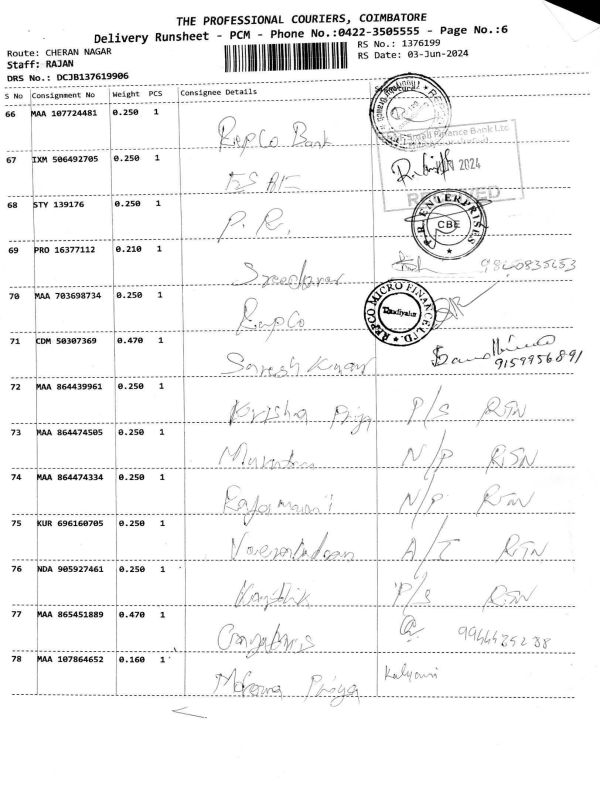 THE PROFESSIONAL COURIERS, COIMBATORE
Delivery Runsheet - PCM - Phone No.:0422-3505555 - Page No.:6
Route: CHERAN NAGAR
RS No.: 1376199
Staff: RAJAN
RS Date: 03-Jun-2024
DRS No.: DCJB137619906
S No Consignment No Weight PCS Consignee Details
66 MAA 107724481 0.250 1
Repco Bank
Small Finance Bank Ltd
67 IXM 506492705 0.250 1
2024
68 STY 139176 0.250 1
P. R.
P.R. ENTERPRISES
CBE
69 PRO 16377112 0.210 1
70 MAA 703698734 0.250 1
Repco
REPCO MICRO FINANCE LTD.
71 CDM 50307369 0.470 1
Suresh Kumar
9159956891
72 MAA 864439961 0.250 1
Krishna Priya P/S RTN
73 MAA 864474505 0.250 1
N/P RTN
74 MAA 864474334 0.250 1
N/P RTN
75 KUR 696160705 0.250 1
A/T RTN
76 NDA 905927461 0.250 1
Karthik P/S RTN
77 MAA 865451889 0.470 1
78 MAA 107864652 0.160 1
Priya Kalyani